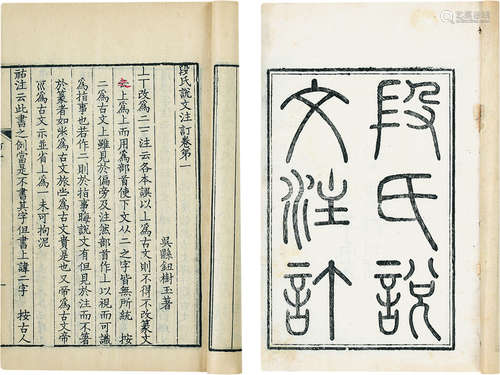 段氏說
文注訂
段氏說文注訂卷第一
吳縣鈕樹玉著
上丅改為二二注云各本誤以上為古文則不得不改篆文
上為上而用為部首使下文从二之字皆無所統 按
二為古文上雖見於偏旁及注然部首作上以視而可識
為指事也若作二則於指事晦說文有但見於注而不箸
於篆者如 為古文旅 為古文貴是也又帝為古文帝
為古文示並省上為一未可拘泥
祜注云此書之例當是不書其字但書上諱二字 按古人